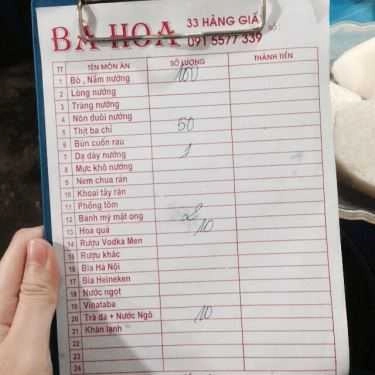 BA HOA 33 HÀNG GIÀ
091 5577 339
TT TÊN MÓN ĂN SỐ LƯỢNG THÀNH TIỀN
1 Bò, Nầm nướng 100
2 Lòng nướng
3 Tràng nướng
4 Nõn đuôi nướng
5 Thịt ba chỉ 50
6 Bún cuốn rau
7 Dạ dày nướng 1
8 Mực khô nướng
9 Nem chua rán
10 Khoai tây rán
11 Phồng tôm
12 Bánh mỳ mật ong 2
13 Hoa quả 10
14 Rượu Vodka Men
15 Rượu khác
16 Bia Hà Nội
17 Bia Heineken
18 Nước ngọt
19 Vinataba
20 Trà đá + Nước Ngô 10
21 Khăn lạnh
22
23
24